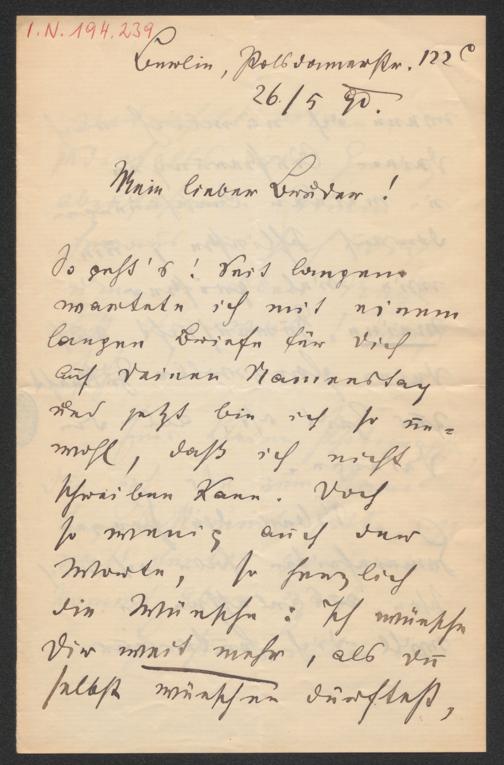 I.N. 194.239
Berlin, Potsdamerstr. 122c
26./5 90.
Mein lieber Bruder!
So geht's! Seit langem
wartete ich mit einem
langen Briefe für Dich
auf Deinen Namenstag
und jetzt bin ich so un=
wohl, daß ich nicht
schreiben kann. Doch
so wenig auch der
Worte, so herzlich
die Wünsche: Ich wünsche
Dir weit mehr, als du
selbst wünschen dürftest,